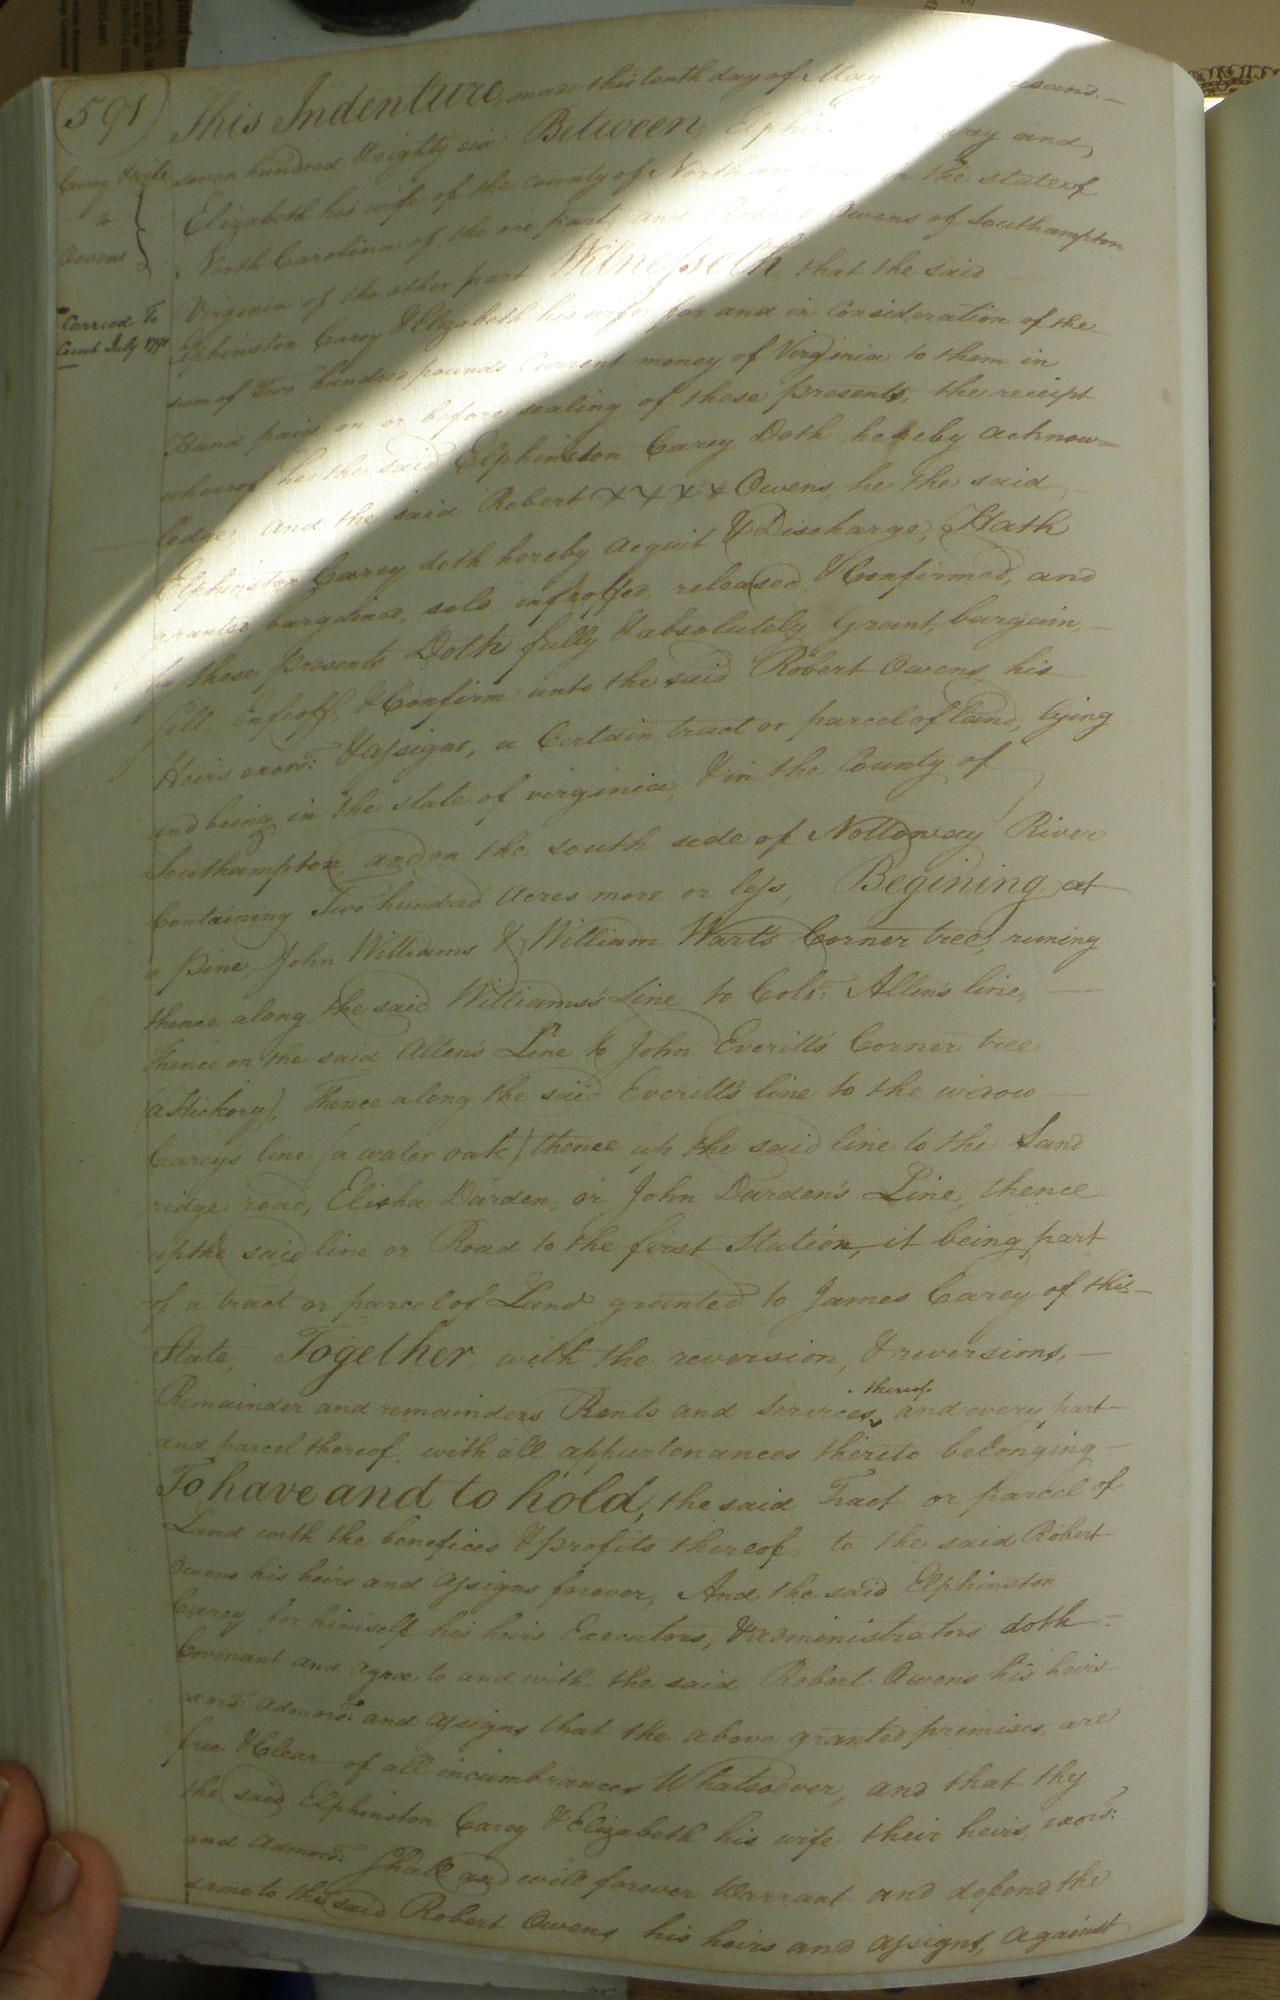 591
This Indenture, made this tenth day of May
seven hundred & eighty six Between Elphin and
Elizabeth his wife of the county of in the state of
North Carolina of the one part, and Robert Owens of Southampton
Virginia of the other part Witnesseth, that the said
Elphinston Carey & Elizabeth his wife for and in Consideration of the
sum of Two hundred pounds Current money of Virginia to them in
Hand paid on or before sealing of these presents, the receipt
whereof he the said Elphinston Carey Doth hereby acknow-
ledge, and the said Robert x x x x Owens, he the said
Elphinston Carey doth hereby acquit & Discharge, Hath
granted, bargained, sold enfeoffed, released, & Confirmed, and
by these presents Doth fully & absolutely Grant, bargain,
sell, Enfeoff, & Confirm unto the said Robert Owens, his
Heirs exors: & assigns, a Certain tract or parcel of Land, lying
and being in the state of virginia, & in the County of
Southampton, and on the south side of Nottoway River
Containing Two hundred Acres more or less, Begining at
a pine, John Williams & William Wart's Corner tree, runing
thence along the said Williams's Line to Colo: Allen's line,
Thence on the said Allen's Line to John Everitt's Corner tree
(a Hickory), Thence along the said Everitt's line to the widow
Carey's line (a water oak) thence up the said line to the Sand
ridge road, Elisha Darden, or John Darden's Line, thence
up the said line or Road to the first Station, it being part
of a tract or parcel of Land granted to James Carey of this
State, Together with the reversion, & reversions,
Remainder and remainders Rents and Services thereof and every part
and parcel thereof, with all appurtenances thereto belonging
To have and to hold, the said Tract or parcel of
Land with the benefices & profits thereof, to the said Robert
Owens his heirs and assigns forever, And the said Elphinston
Carey for himself his heirs Executors, & administrators doth
Covenant and agree to and with the said Robert Owens his heirs
exors: admors: and assigns that the above granted premises, are
free & Clear of all incumbrances Whatsoever, and that thy
the said Elphinston Carey & Elizabeth his wife their heirs, exors:
and admors: shall and will forever Warrant and defend the
same to the said Robert Owens, his heirs and assigns, against
Carey & wife
to
Owens
Carried To
Court July 1791